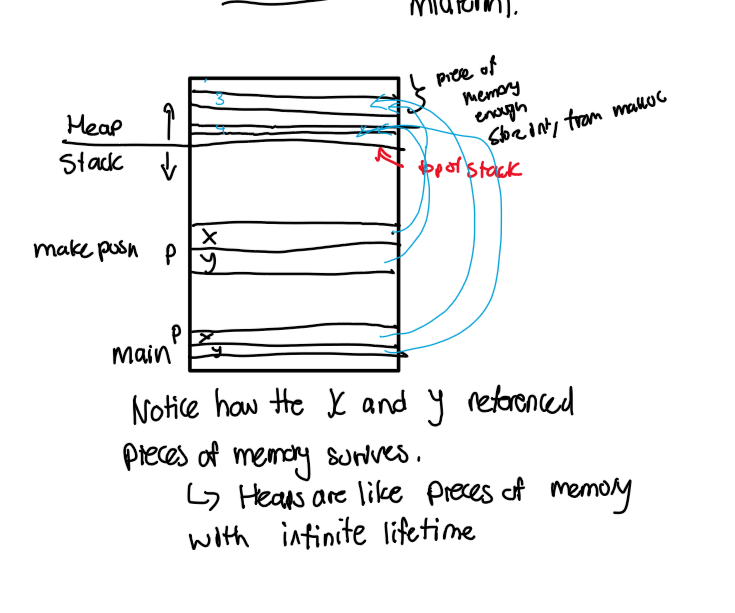 malloc).
3
piece of
memory
enough
store int, from malloc
Heap
4
Stack
top of stack
X
make posn p
y
p
x
main
y
Notice how the X and y referenced
pieces of memory survives.
↳ Heaps are like pieces of memory
with infinite lifetime